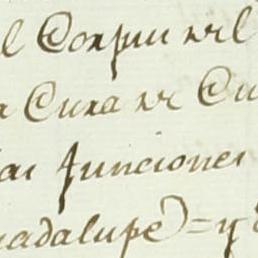 l Corpu
a Cura de Cu
las funciones
uadalupe) = y